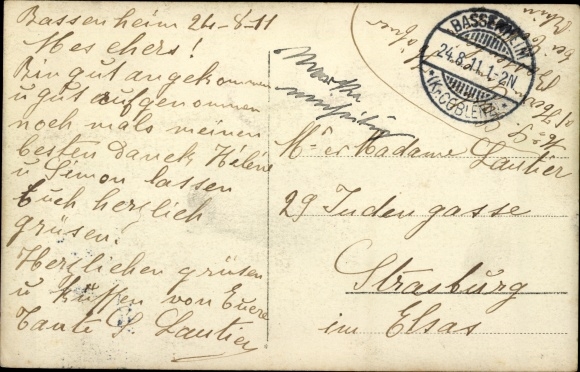 Bassenheim 24-8-11
Mes chers!
Bin gut angekommen
u gut aufgenommen
noch mals meinen
besten Danck, Hélène
u Simon lassen
Euch herzlich
grüsen!
Herzlichen grüsen
u küssen von Euere
Tante S Lautier
Martha
BASSENHEIM
24.8.11.1-2N
*(K. COBLENZ)*
Mr et Madame Lautier
29 Judengasse
Strasburg
im Elsas